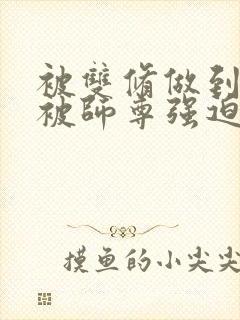 被雙脩做到
被師尊强迫
摸鱼的小尖尖